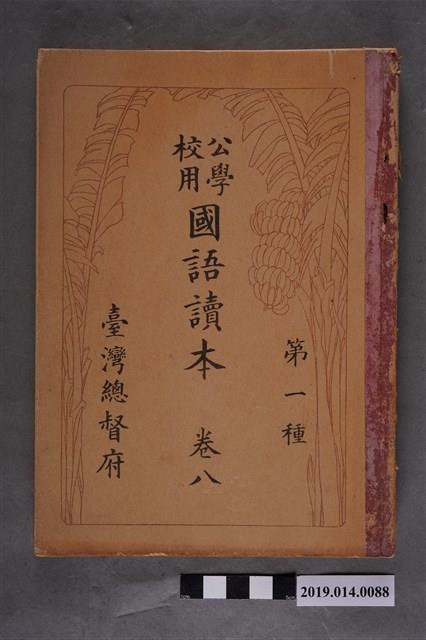 第一種
公學校用
國語讀本 卷八
臺灣總督府
2019.014.0088